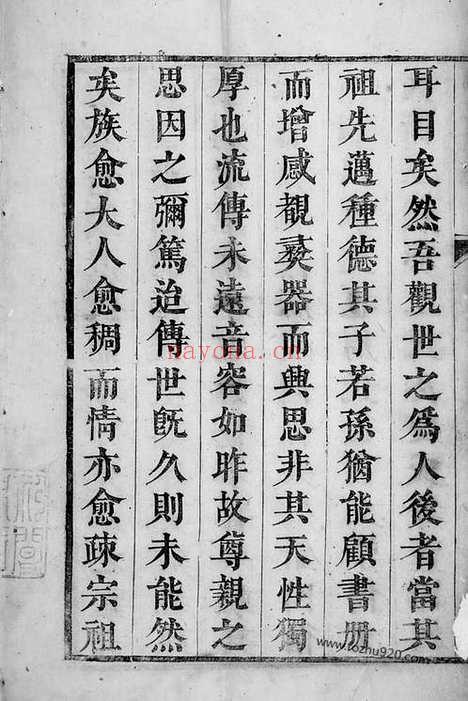 耳目矣然吾觀世之爲人後者當其
祖先邁種德其子若孫猶能顧書册
而增感覩彞器而興思非其天性獨
厚也流傳未遠音容如昨故尊親之
思因之彌篤迨傳世旣久則未能然
矣族愈大人愈稠而情亦愈疎宗祖
nayona.cn
www.tozhu920.com